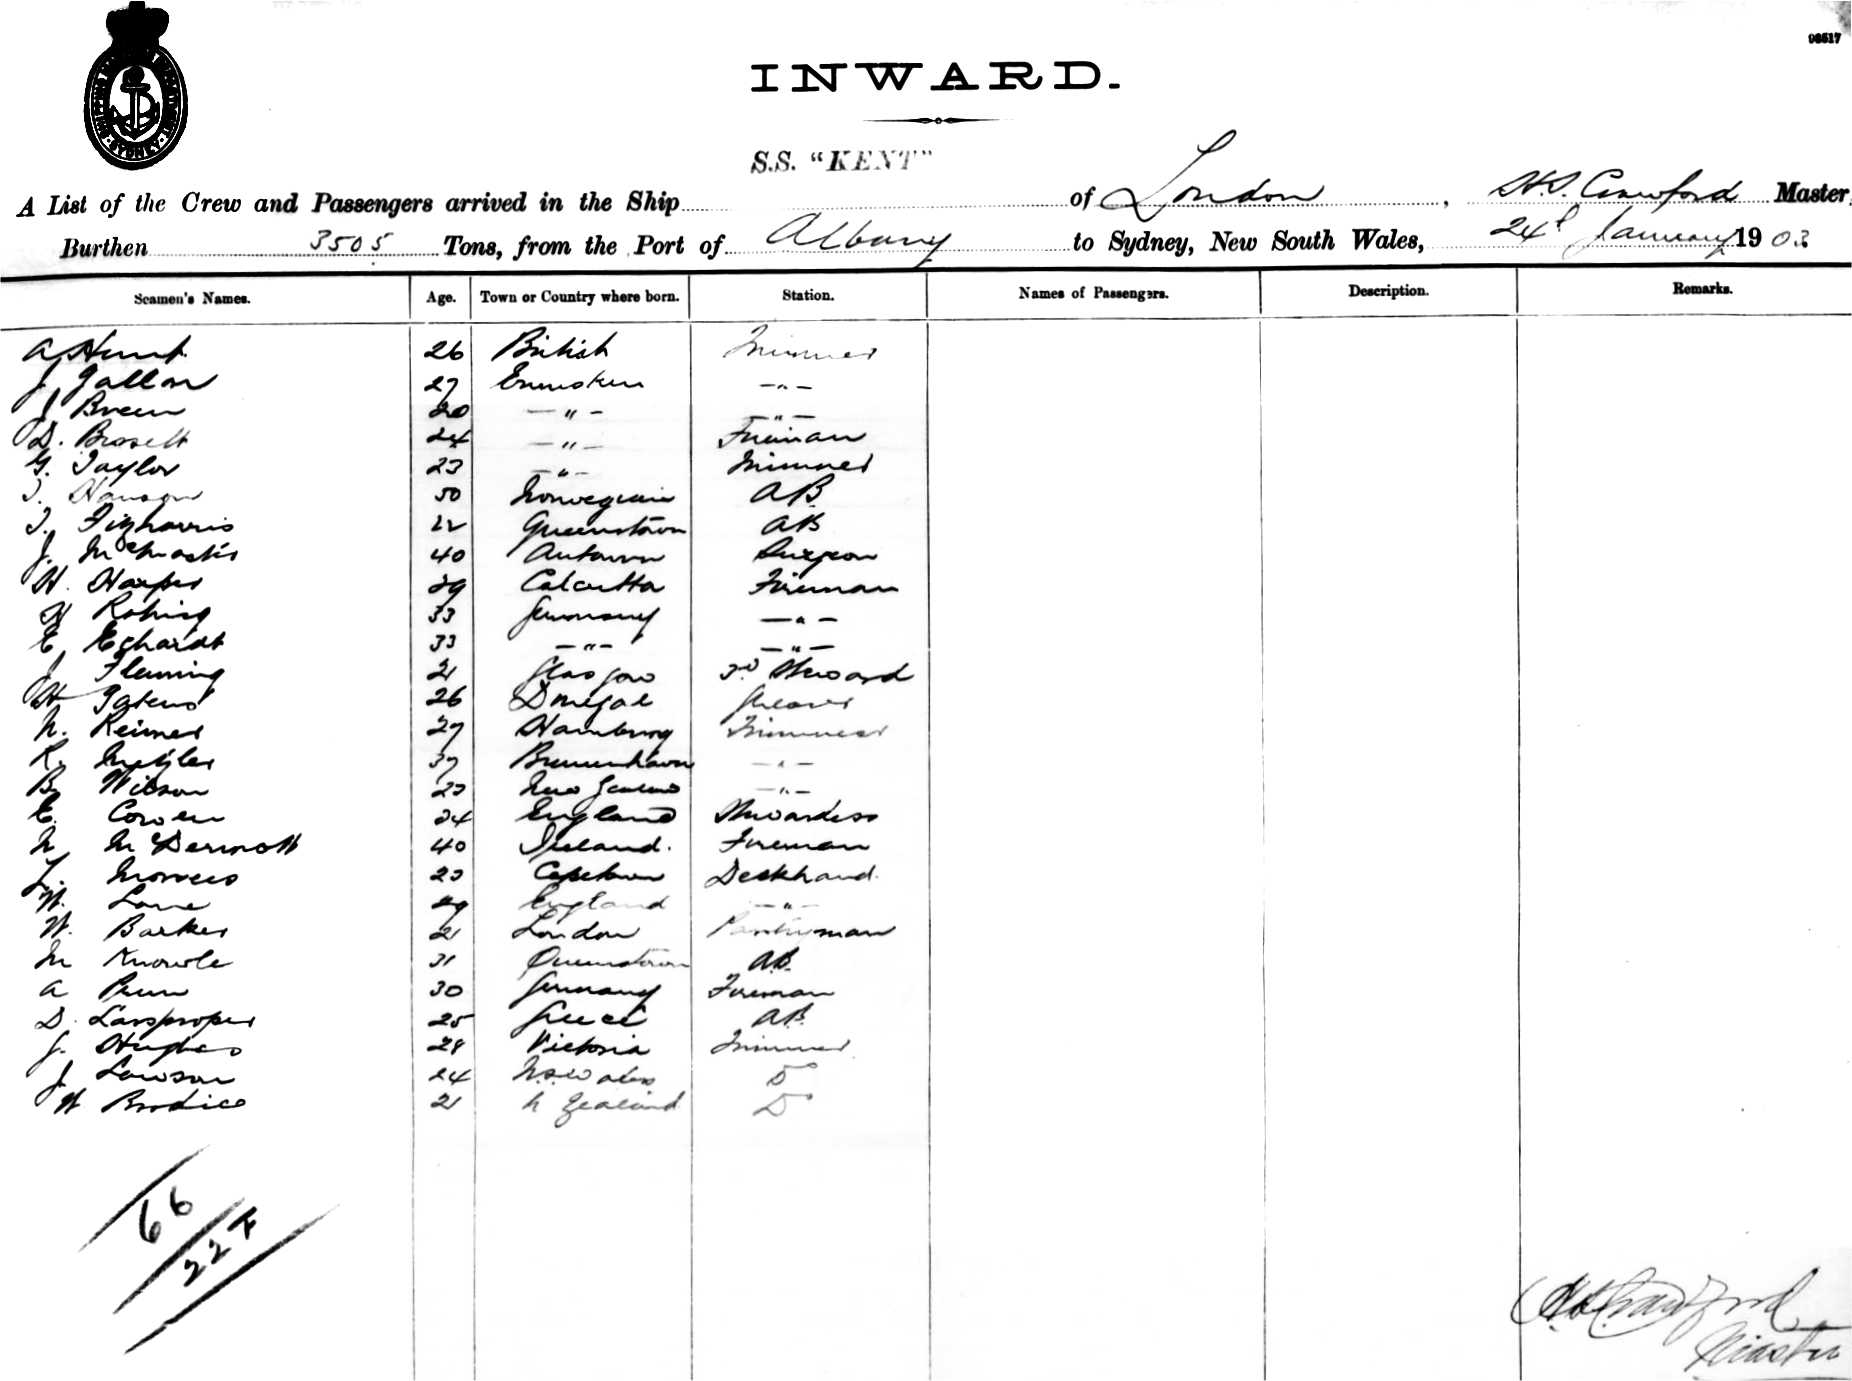 SHIPPING MASTER'S DEPARTMENT SYDNEY
96517
INWARD.
S.S. "KENT"
A List of the Crew and Passengers arrived in the Ship of London, H.S. Crawford Master,
Burthen 3505 Tons, from the Port of Albany to Sydney, New South Wales, 24th January 1903
Seamen's Names. Age. Town or Country where born. Station. Names of Passengers. Description. Remarks.
A Hunt 26 British Trimmer
J Gallon 27 -"-
J Breen 20 -"- -"-
D. Brosett 24 -"- Fireman
G. Taylor 23 -"- Trimmer
Hanson 50 Norwegian AB
Fizharris 22 Queenstown AB
J. 40 Surgeon
H. Harper 29 Calcutta Fireman
H 33 Germany -"-
E. Echardt 33 -"- -"-
J Fleming 21 Glasgow 3rd Steward
H 26 Donegal Greaser
N. Reimer 27 Hamburg Trimmer
R. 37 Bremerhaven -"-
B. Wilson 23 New Zealand -"-
E. Cowen 34 England Stewardess
N McDermott 40 Ireland. Fireman
23 Capetown Deckhand
W. Lane 29 England -"-
W. Barker 21 London Pantryman
M Knowle 31 Queenstown A.B.
A 30 Germany Fireman
D. 25 Greece A.B.
J. Hughes 28 Victoria Trimmer
J Lawson 24 N.S. Wales Do
W Brodice 21 N Zealand Do
66
22 F
H.S. Crawford
Master